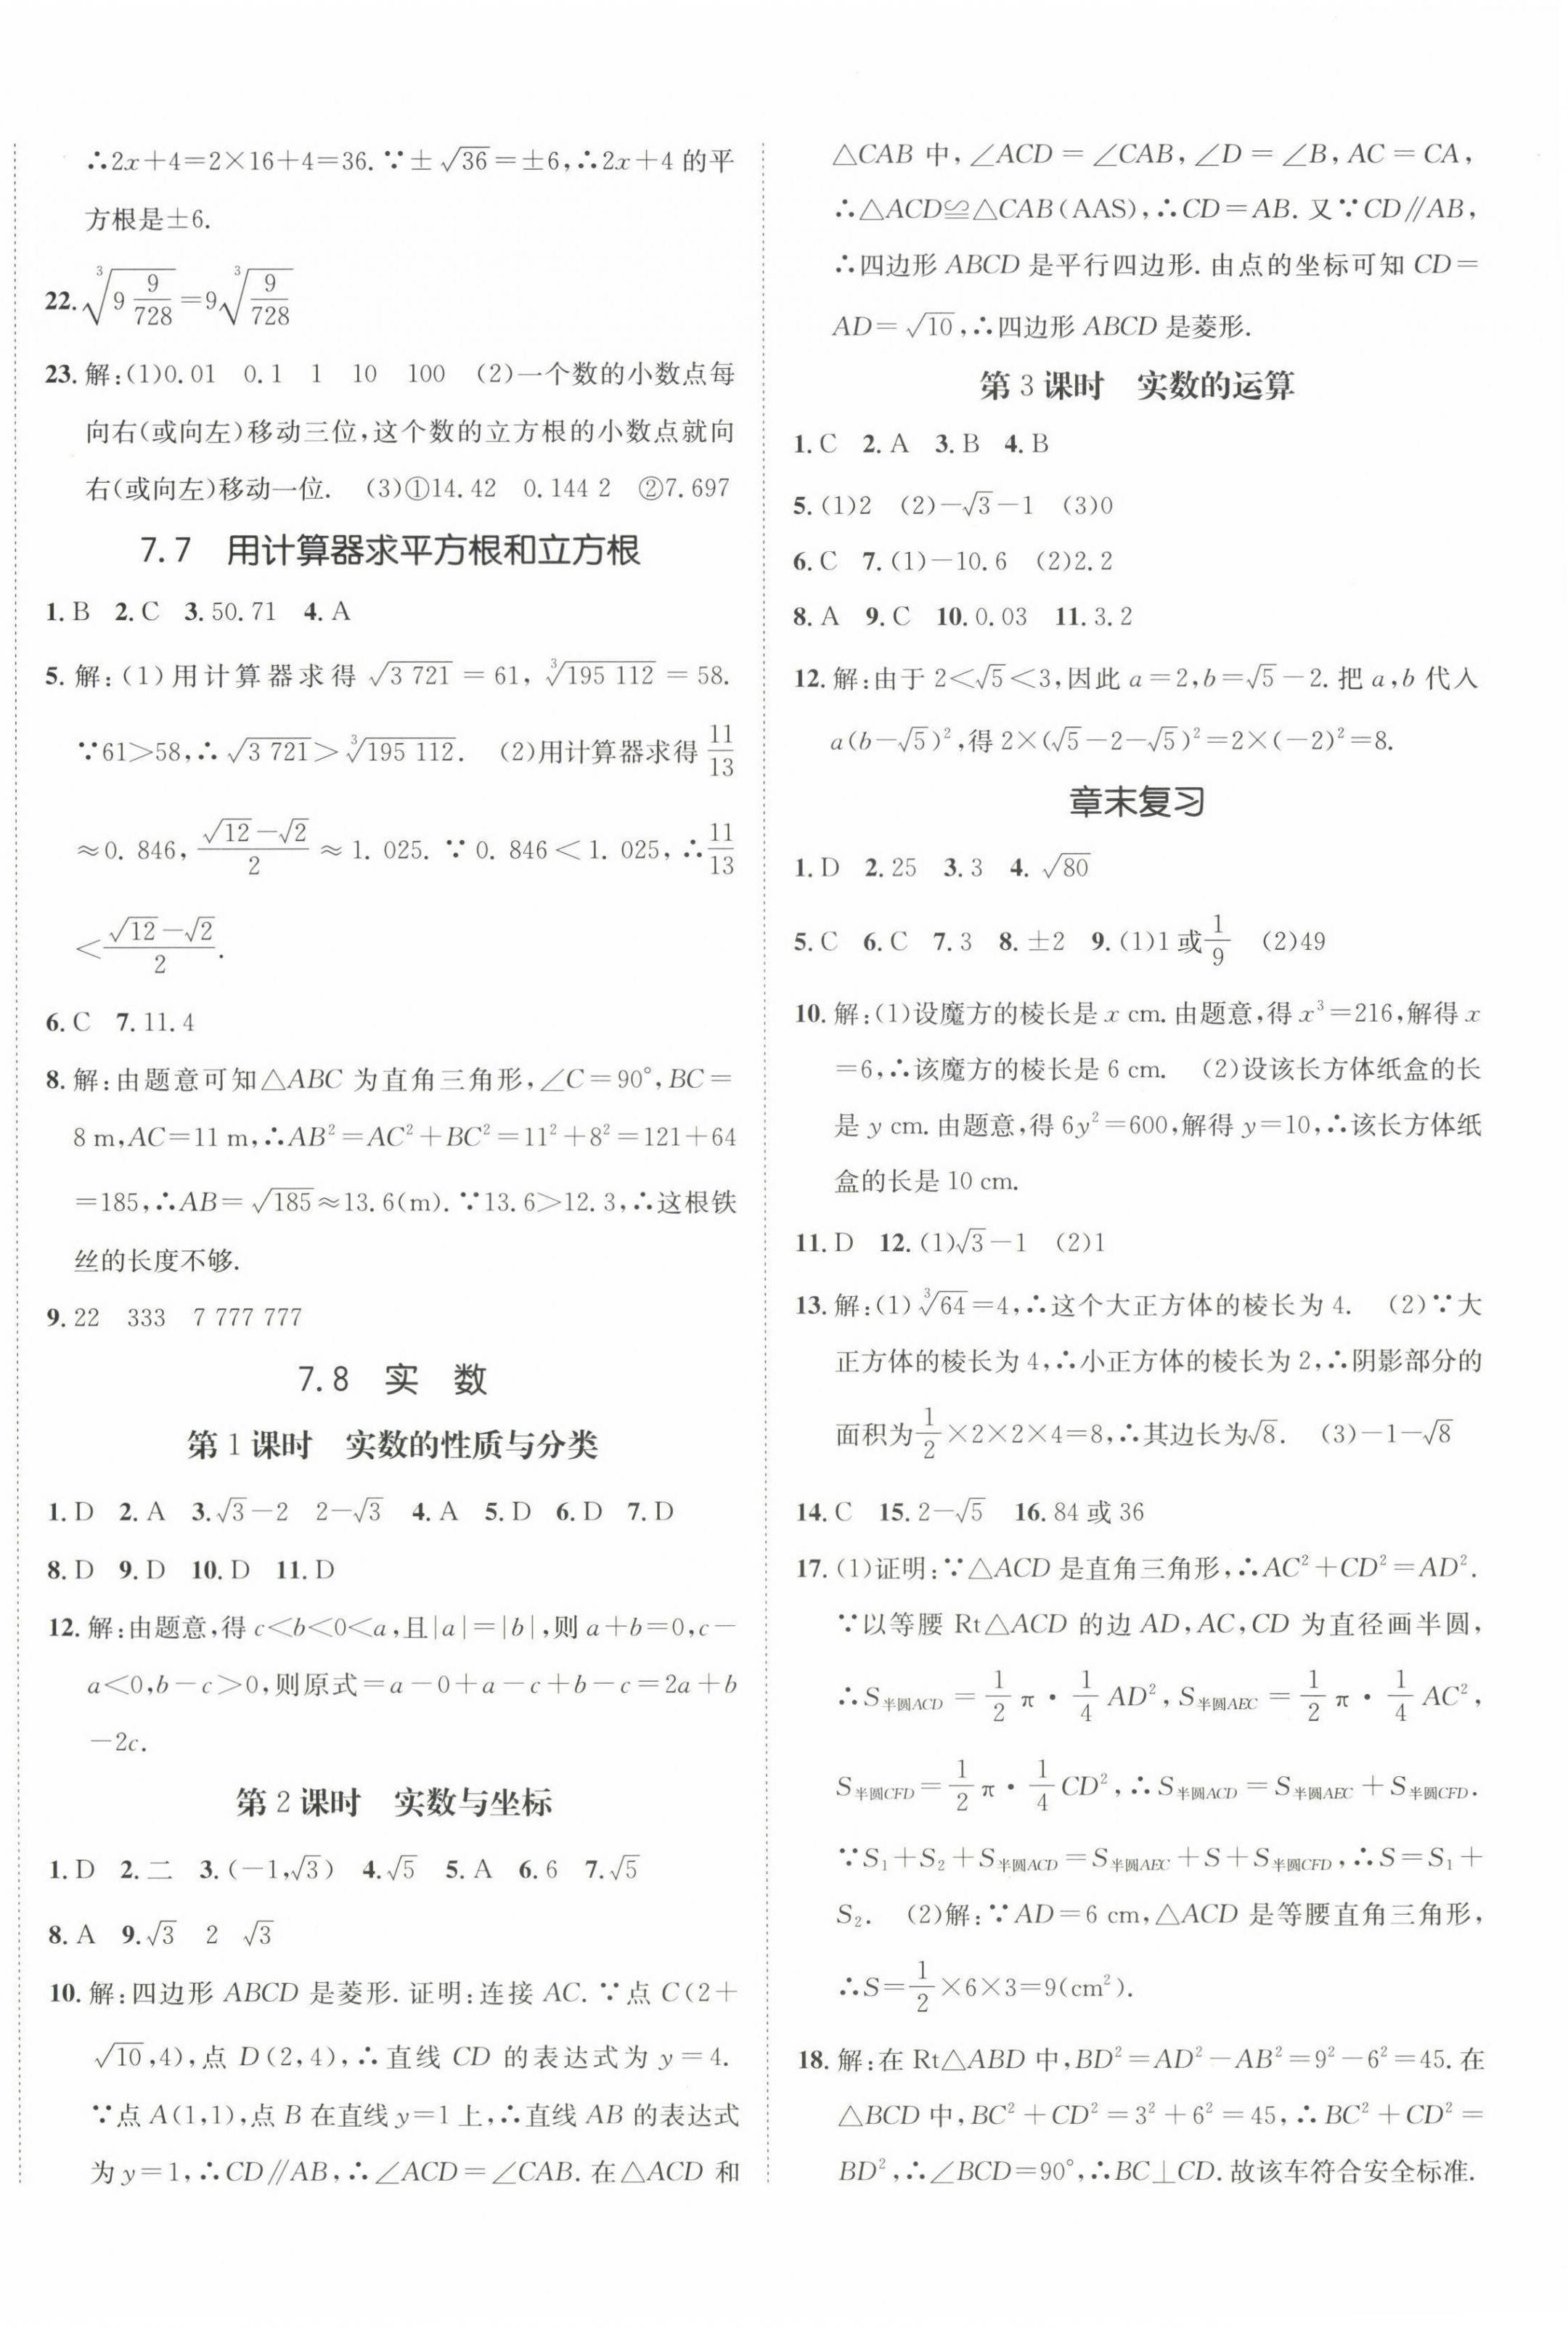 ∴2x+4=2×16+4=36.∵±√36=±6,∴2x+4 的平
方根是±6.
22.∛(9 9/728)=9∛(9/728)
23.解:(1)0.01 0.1 1 10 100 (2)一个数的小数点每
向右(或向左)移动三位,这个数的立方根的小数点就向
右(或向左)移动一位. (3)①14.42 0.144 2 ②7.697
7.7 用计算器求平方根和立方根
1.B 2.C 3.50.71 4.A
5.解:(1)用计算器求得 √(3 721)=61, ∛(195 112)=58.
∵61>58,∴√(3 721)>∛(195 112). (2)用计算器求得 11/13
≈0.846, (√12-√2)/2≈1.025.∵0.846<1.025,∴11/13
<(√12-√2)/2.
6.C 7.11.4
8.解:由题意可知△ABC 为直角三角形,∠C=90°,BC=
8 m,AC=11 m,∴AB²=AC²+BC²=11²+8²=121+64
=185,∴AB=√185≈13.6(m).∵13.6>12.3,∴这根铁
丝的长度不够.
9.22 333 7 777 777
7.8 实 数
第1课时 实数的性质与分类
1.D 2.A 3.√3-2 2-√3 4.A 5.D 6.D 7.D
8.D 9.D 10.D 11.D
12.解:由题意,得 c<b<0<a,且|a|=|b|,则 a+b=0,c-
a<0,b-c>0,则原式=a-0+a-c+b-c=2a+b
-2c.
第2课时 实数与坐标
1.D 2.二 3.(-1,√3) 4.√5 5.A 6.6 7.√5
8.A 9.√3 2 √3
10.解:四边形 ABCD 是菱形.证明:连接 AC.∵点 C(2+
√10,4),点 D(2,4),∴直线 CD 的表达式为 y=4.
∵点 A(1,1),点 B 在直线 y=1 上,∴直线 AB 的表达式
为 y=1,∴CD∥AB,∴∠ACD=∠CAB.在△ACD 和
△CAB 中,∠ACD=∠CAB,∠D=∠B,AC=CA,
∴△ACD≌△CAB(AAS),∴CD=AB.又∵CD∥AB,
∴四边形 ABCD 是平行四边形.由点的坐标可知 CD=
AD=√10,∴四边形 ABCD 是菱形.
第3课时 实数的运算
1.C 2.A 3.B 4.B
5.(1)2 (2)-√3-1 (3)0
6.C 7.(1)-10.6 (2)2.2
8.A 9.C 10.0.03 11.3.2
12.解:由于 2<√5<3,因此 a=2,b=√5-2.把 a,b 代入
a(b-√5)²,得 2×(√5-2-√5)²=2×(-2)²=8.
章末复习
1.D 2.25 3.3 4.√80
5.C 6.C 7.3 8.±2 9.(1)1 或 1/9 (2)49
10.解:(1)设魔方的棱长是 x cm.由题意,得 x³=216,解得 x
=6,∴该魔方的棱长是 6 cm. (2)设该长方体纸盒的长
是 y cm.由题意,得 6y²=600,解得 y=10,∴该长方体纸
盒的长是 10 cm.
11.D 12.(1)√3-1 (2)1
13.解:(1)∛64=4,∴这个大正方体的棱长为 4. (2)∵大
正方体的棱长为 4,∴小正方体的棱长为 2,∴阴影部分的
面积为 1/2×2×2×4=8,∴其边长为√8. (3)-1-√8
14.C 15.2-√5 16.84 或 36
17.(1)证明:∵△ACD 是直角三角形,∴AC²+CD²=AD².
∵以等腰 Rt△ACD 的边 AD,AC,CD 为直径画半圆,
∴S半圆ACD=1/2 π·1/4 AD²,S半圆AEC=1/2 π·1/4 AC²,
S半圆CFD=1/2 π·1/4 CD²,∴S半圆ACD=S半圆AEC+S半圆CFD.
∵S₁+S₂+S半圆ACD=S半圆AEC+S+S半圆CFD,∴S=S₁+
S₂. (2)解:∵AD=6 cm,△ACD 是等腰直角三角形,
∴S=1/2×6×3=9(cm²).
18.解:在 Rt△ABD 中,BD²=AD²-AB²=9²-6²=45.在
△BCD 中,BC²+CD²=3²+6²=45,∴BC²+CD²=
BD²,∴∠BCD=90°,∴BC⊥CD.故该车符合安全标准.